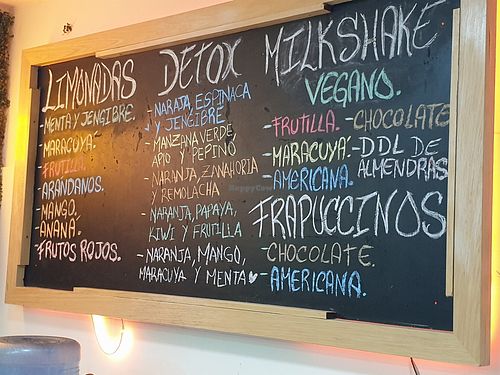 LIMONADAS
-MENTA Y JENGIBRE.
-MARACUYA.
-FRUTILLA.
-ARANDANOS.
-MANGO.
-ANANA.
-FRUTOS ROJOS.
DETOX
-NARAJA, ESPINACA
Y JENGIBRE
-MANZANA VERDE,
APIO Y PEPINO
-NARANJA, ZANAHORIA
Y REMOLACHA
-NARANJA, PAPAYA,
KIWI Y FRUTILLA
-NARANJA, MANGO,
MARACUYA Y MENTA
MILKSHAKE
VEGANO.
-FRUTILLA.
-MARACUYÁ.
-AMERICANA.
-CHOCOLATE
-DDL DE
ALMENDRAS
FRAPUCCINOS
-CHOCOLATE.
-AMERICANA.
HappyCow